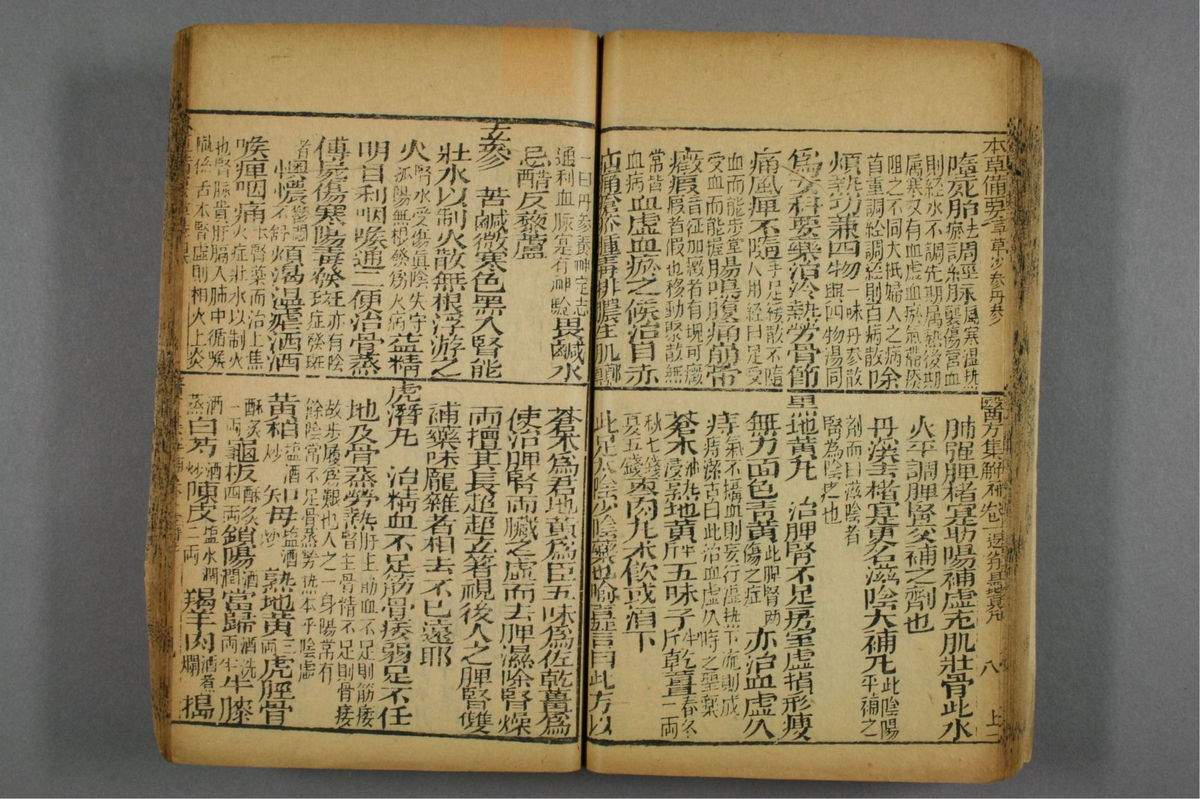 本草備要
墮死胎
則經水不調先期屬熱後期
屬寒又有血虛血瘀氣滯痰
阻之不同大抵婦人之病
首重調經調經則百病散除
煩熱功兼四物一味丹參散與四物湯同
為女科要藥治冷熱勞骨節
痛風痺不隨手足緩散不隨人用經曰足受
血而能步掌受血而能握腸鳴腹痛崩帶
癥瘕
瘕者假也移動聚散無
常皆血病血虛血瘀之候治目赤
疝痛瘡疥腫毒排膿生肌鄭
醫方集解
八
上二
肺強脾者宜助陽補虛充肌壯骨此水
火平調脾腎交補之劑也
丹溪去楮實更名滋陰大補丸此陰陽平補之
劑而曰滋陰者
腎為陰臟也
黑地黃丸 治脾腎不足房室虛損形瘦
無力面色青黃此脾腎兩傷之症亦治血虛久
痔氣不攝血則妄行濕熱下流則成
痔潔古曰此治血虛久痔之聖藥
蒼朮浸熟地黃一斤五味子半斤乾薑春冬一兩
秋七錢夏五錢棗肉丸米飲或酒下
此足太陰少陰藥也喻嘉言曰此方以
一曰丹參養神定志
通利血脉寔有神驗畏鹹水
忌醋反藜蘆
玄參 苦鹹微寒色黑入腎能
壯水以制火散無根浮游之
火腎水受傷眞陰失守孤陽無根發為火病益精
明目利咽喉通二便治骨蒸
傳屍傷寒陽毒發斑亦有陰症發斑
者懊憹煩渴溫瘧洒洒
喉痺咽痛本腎藥而治上焦火症壯水以制火
也腎脉貫肝膈入肺中循喉
嚨係舌本腎虛則相火上炎
蒼朮為君地黃為臣五味為佐乾薑為
使治脾腎兩臟之虛而去脾濕除腎燥
兩擅其長超超玄著視後人之脾腎雙
補藥味龐雜者相去不已遠耶
虎潛丸 治精血不足筋骨痿弱足不任
地及骨蒸勞熱肝主筋血不足則筋痿腎主骨精不足則骨痿
故步履為艱也人之一身陽常有
餘陰常不足骨蒸勞熱本乎陰虛
黃柏鹽酒炒知母鹽酒炒熟地黃三兩虎脛骨
酥炙一兩龜板酥炙四兩鎖陽酒潤當歸酒洗一兩半牛膝
酒蒸白芍酒炒陳皮鹽水潤二兩羯羊肉酒煮爛搗